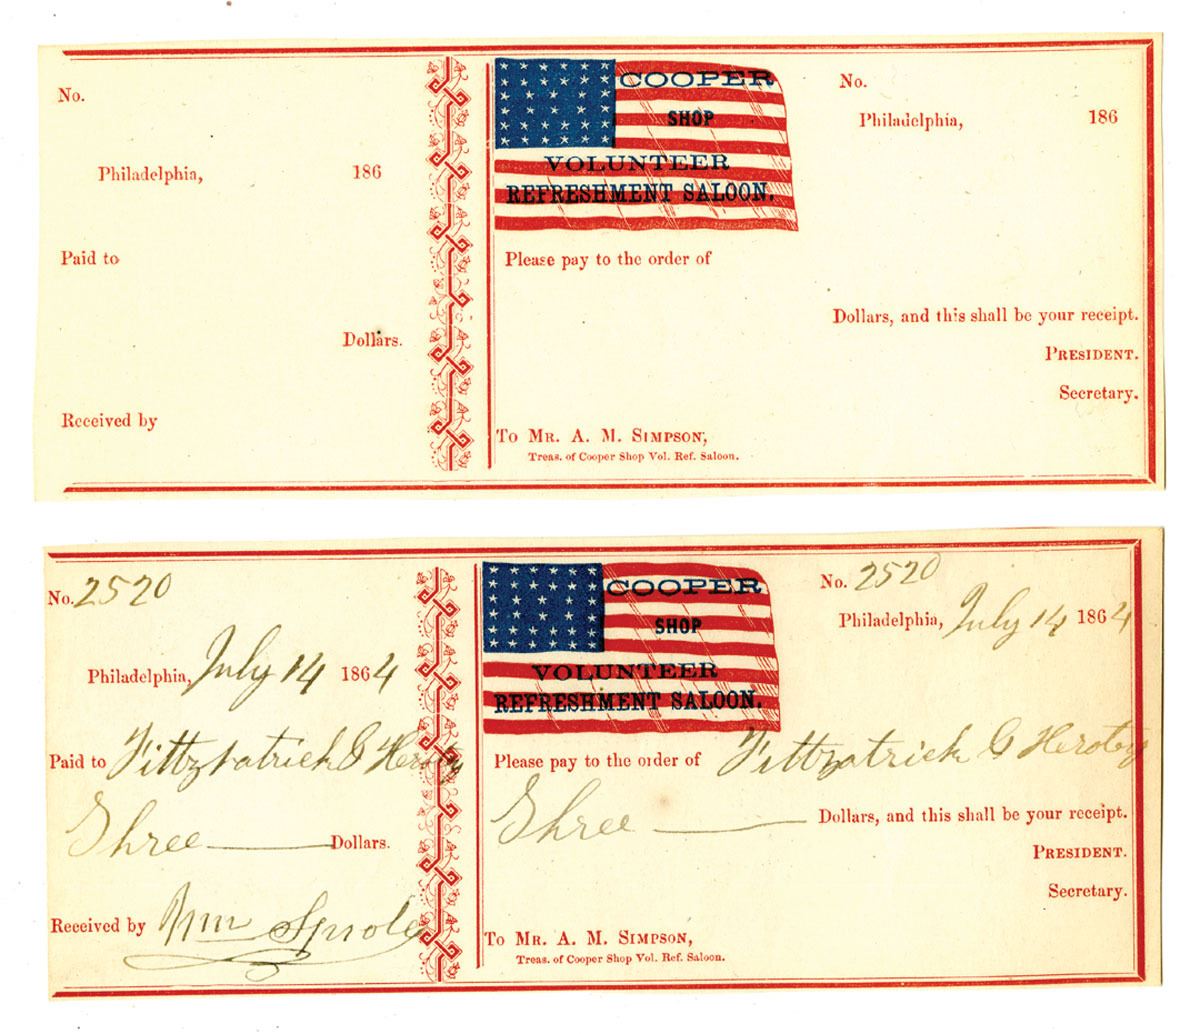 No.
Philadelphia, 186
Paid to
Dollars.
Received by
COOPER
SHOP
VOLUNTEER
REFRESHMENT SALOON.
No.
Philadelphia, 186
Please pay to the order of
Dollars, and this shall be your receipt.
PRESIDENT.
Secretary.
To MR. A. M. SIMPSON,
Treas. of Cooper Shop Vol. Ref. Saloon.
No. 2520
Philadelphia, July 14 1864
Paid to Fittzpatrick G
Three Dollars.
Received by Wm Sprole
COOPER
SHOP
VOLUNTEER
REFRESHMENT SALOON.
No. 2520
Philadelphia, July 14 1864
Please pay to the order of Fittzpatrick G
Three Dollars, and this shall be your receipt.
PRESIDENT.
Secretary.
To MR. A. M. SIMPSON,
Treas. of Cooper Shop Vol. Ref. Saloon.